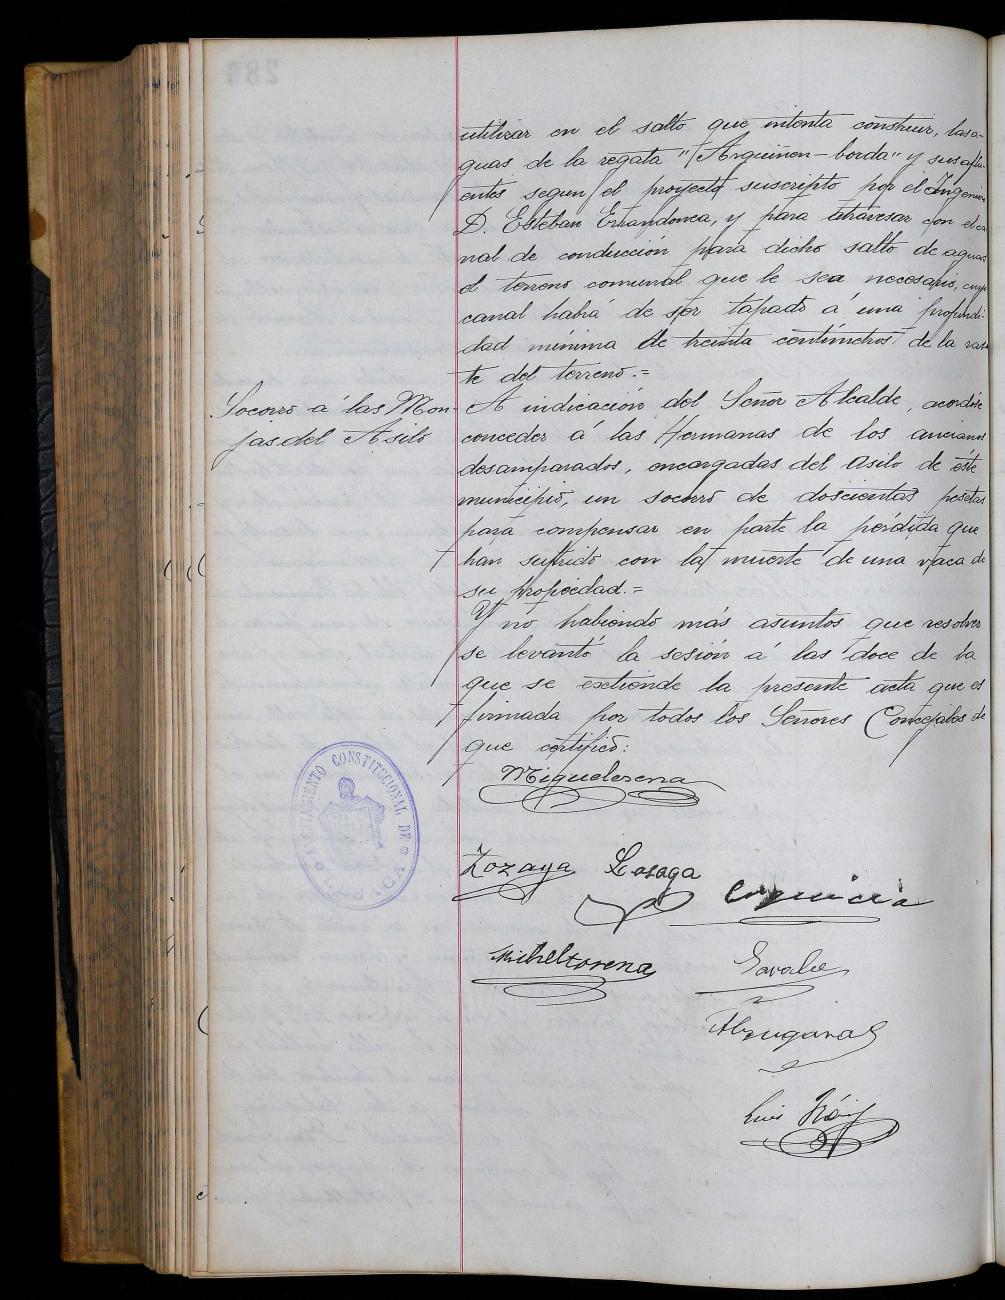 utilizar en el salto que intenta construir, las a-
guas de la regata "Arguiñen-borda" y sus aflu-
entes segun el proyecto suscripto por el Ingeniero
D. Esteban Errandonea, y para atravesar con el ca-
nal de conducción para dicho salto de aguas
el terreno comunal que le sea necesario, cuyo
canal habrá de ser tapado á una profundi-
dad mínima de treinta centímetros de la rasan-
te del terreno.=
Socorro á las Mon-
jas del Asilo
A indicación del Señor Alcalde, acordose
conceder á las Hermanas de los ancianos
desamparados, encargadas del Asilo de éste
municipio, un socorro de doscientas pesetas
para compensar en parte la pérdida que
han sufrido con la muerte de una vaca de
su propiedad.=
Y no habiendo más asuntos que resolver
se levantó la sesión á las doce de la
que se extiende la presente acta que es
firmada por todos los Señores Concejales de
que certifico:
Miguelesena
AYUNTAMIENTO CONSTITUCIONAL DE
Zozaya Lasaga
Micheltorena